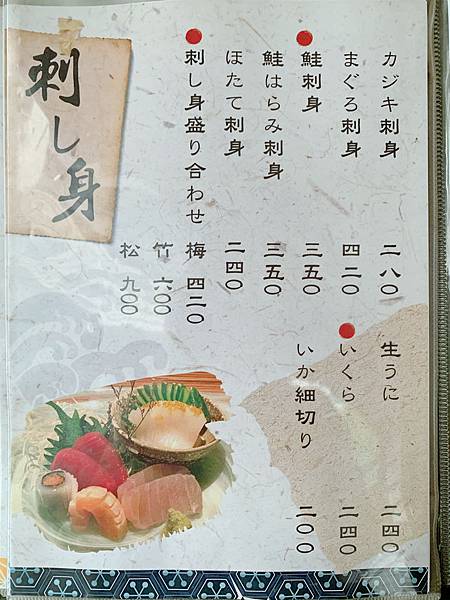 刺し身
カジキ刺身 二八〇
まぐろ刺身 四二〇
鮭刺身 三五〇
鮭はらみ刺身 三五〇
ほたて刺身 二四〇
刺し身盛り合わせ 梅 四二〇
竹 六〇〇
松 九〇〇
生うに 二四〇
いくら 二四〇
いか細切り 二〇〇